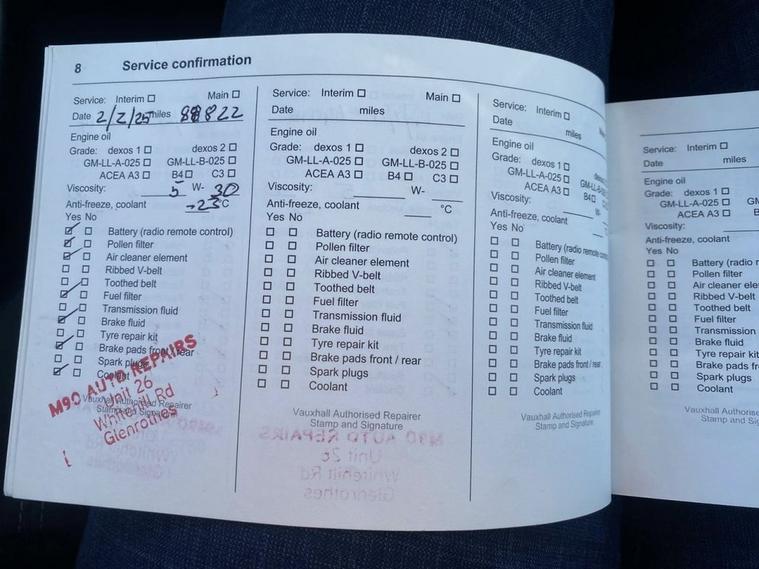 8 Service confirmation
Service: Interim ☐ Main ☐
Date 2/2/25 miles 88822
Engine oil
Grade: dexos 1 ☐ dexos 2 ☐
GM-LL-A-025 ☐ GM-LL-B-025 ☐
ACEA A3 ☐ B4 ☐ C3 ☐
Viscosity: 5 W- 30
Anti-freeze, coolant -23 °C
Yes No
Battery (radio remote control)
Pollen filter
Air cleaner element
Ribbed V-belt
Toothed belt
Fuel filter
Transmission fluid
Brake fluid
Tyre repair kit
Brake pads front / rear
Spark plugs
Coolant
Vauxhall Authorised Repairer
Stamp and Signature
M90 AUTO REPAIRS
Unit 26
Whitehill Rd
Glenrothes
Service: Interim ☐ Main ☐
Date miles
Engine oil
Grade: dexos 1 ☐ dexos 2 ☐
GM-LL-A-025 ☐ GM-LL-B-025 ☐
ACEA A3 ☐ B4 ☐ C3 ☐
Viscosity: W-
Anti-freeze, coolant °C
Yes No
Battery (radio remote control)
Pollen filter
Air cleaner element
Ribbed V-belt
Toothed belt
Fuel filter
Transmission fluid
Brake fluid
Tyre repair kit
Brake pads front / rear
Spark plugs
Coolant
Vauxhall Authorised Repairer
Stamp and Signature
Service: Interim ☐
Date miles
Engine oil
Grade: dexos 1 ☐
GM-LL-A-025 ☐
ACEA A3 ☐ B4 ☐
Viscosity: W-
Anti-freeze, coolant
Yes No
Battery (radio remote
Pollen filter
Air cleaner element
Ribbed V-belt
Toothed belt
Fuel filter
Transmission fluid
Brake fluid
Tyre repair kit
Brake pads front / rear
Spark plugs
Coolant
Vauxhall Authorised Repairer
Stamp and Signature
Service: Interim ☐
Date miles
Engine oil
Grade: dexos 1 ☐
GM-LL-A-025 ☐ GM
ACEA A3 ☐ B
Viscosity:
Anti-freeze, coolant
Yes No
Battery (radio r
Pollen filter
Air cleaner ele
Ribbed V-belt
Toothed belt
Fuel filter
Transmission
Brake fluid
Tyre repair kit
Brake pads fr
Spark plugs
Coolant
Vauxhall Authorise
Stamp and Sig